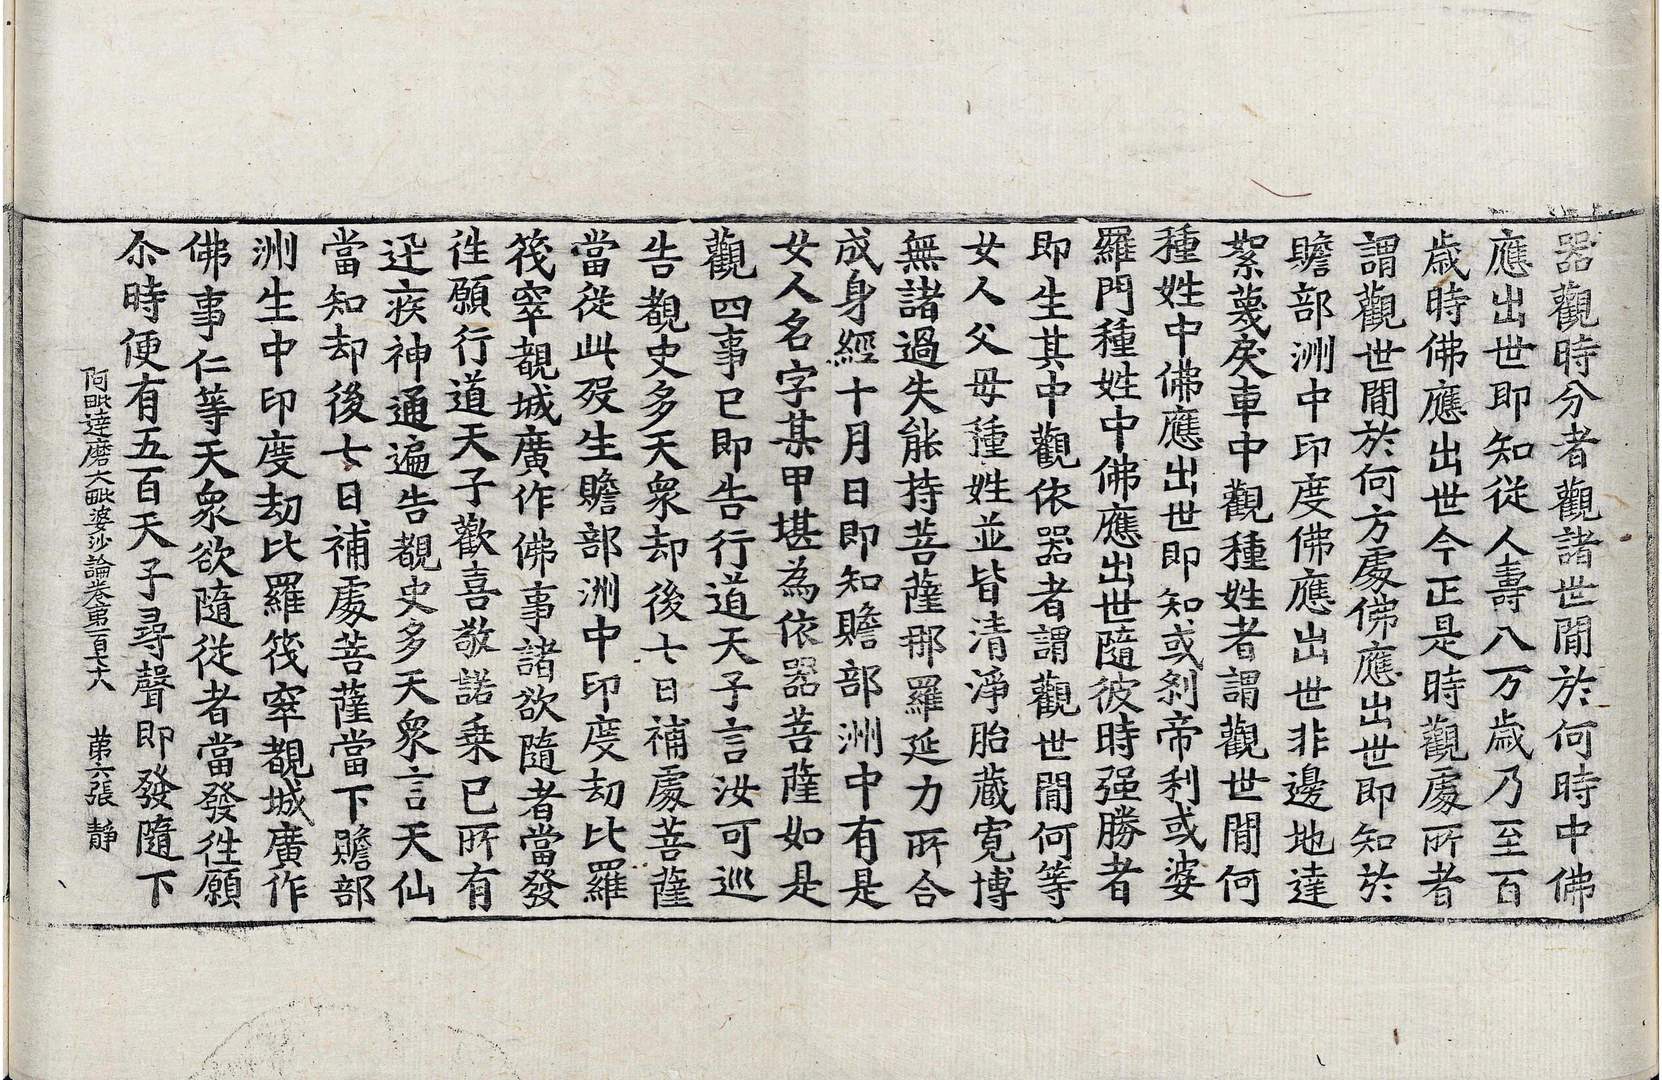 器觀時分者觀諸世間於何時中佛
應出世即知從人壽八万歲乃至百
歲時佛應出世今正是時觀處所者
謂觀世間於何方處佛應出世即知於
贍部洲中印度佛應出世非邊地達
絮蔑戾車中觀種姓者謂觀世間何
種姓中佛應出世即知或剎帝利或婆
羅門種姓中佛應出世隨彼時强勝者
即生其中觀依器者謂觀世間何等
女人父母種姓並皆清淨胎藏寬博
無諸過失能持菩薩那羅延力所合
成身經十月日即知贍部洲中有是
女人名字某甲堪為依器菩薩如是
觀四事已即告行道天子言汝可巡
告覩史多天衆却後七日補處菩薩
當從此歿生贍部洲中印度劫比羅
筏窣覩城廣作佛事諸欲隨者當發
往願行道天子歡喜敬諾乗已所有
迅疾神通遍告覩史多天衆言天仙
當知却後七日補處菩薩當下贍部
洲生中印度劫比羅筏窣覩城廣作
佛事仁等天衆欲隨從者當發往願
尒時便有五百天子尋聲即發隨下
阿毗達磨大毗婆沙論卷第一百七十八 第六張 靜